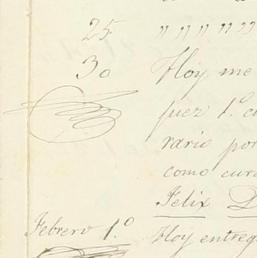 25 " " " " "
30 Hoy me
juez 1.º
rario por
como cura
Felix D
Febrero 1.º Hoy entreg